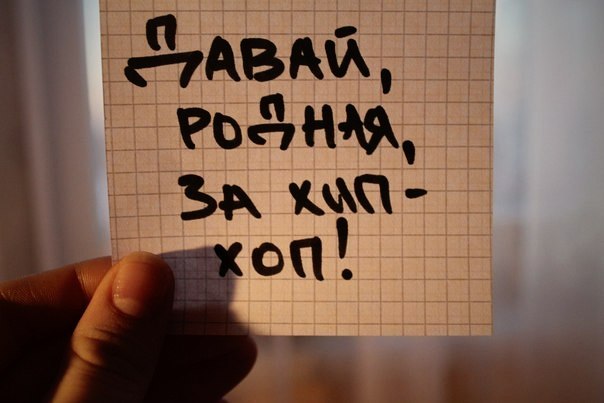 Давай,
родная,
за хип-
хоп!